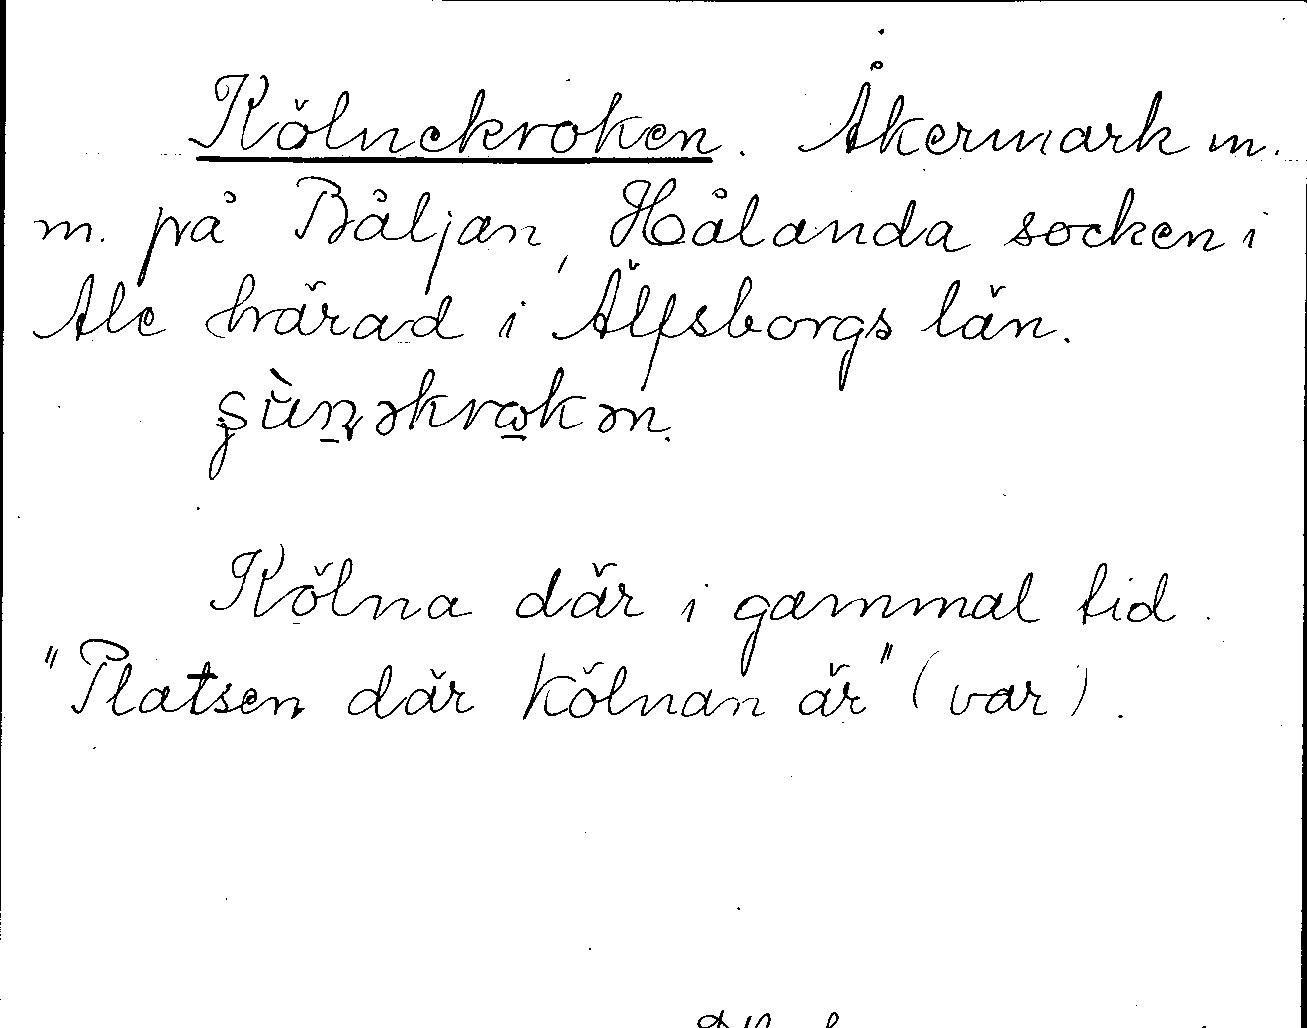 Kölnekroken. Åkermark m.
m. på Båljan, Hålanda socken i
Ale härad i Älfsborgs län.
ʂùn̠əkrωkən.

Kölna där i gammal tid.
"Platsen där kölnan är" (var).